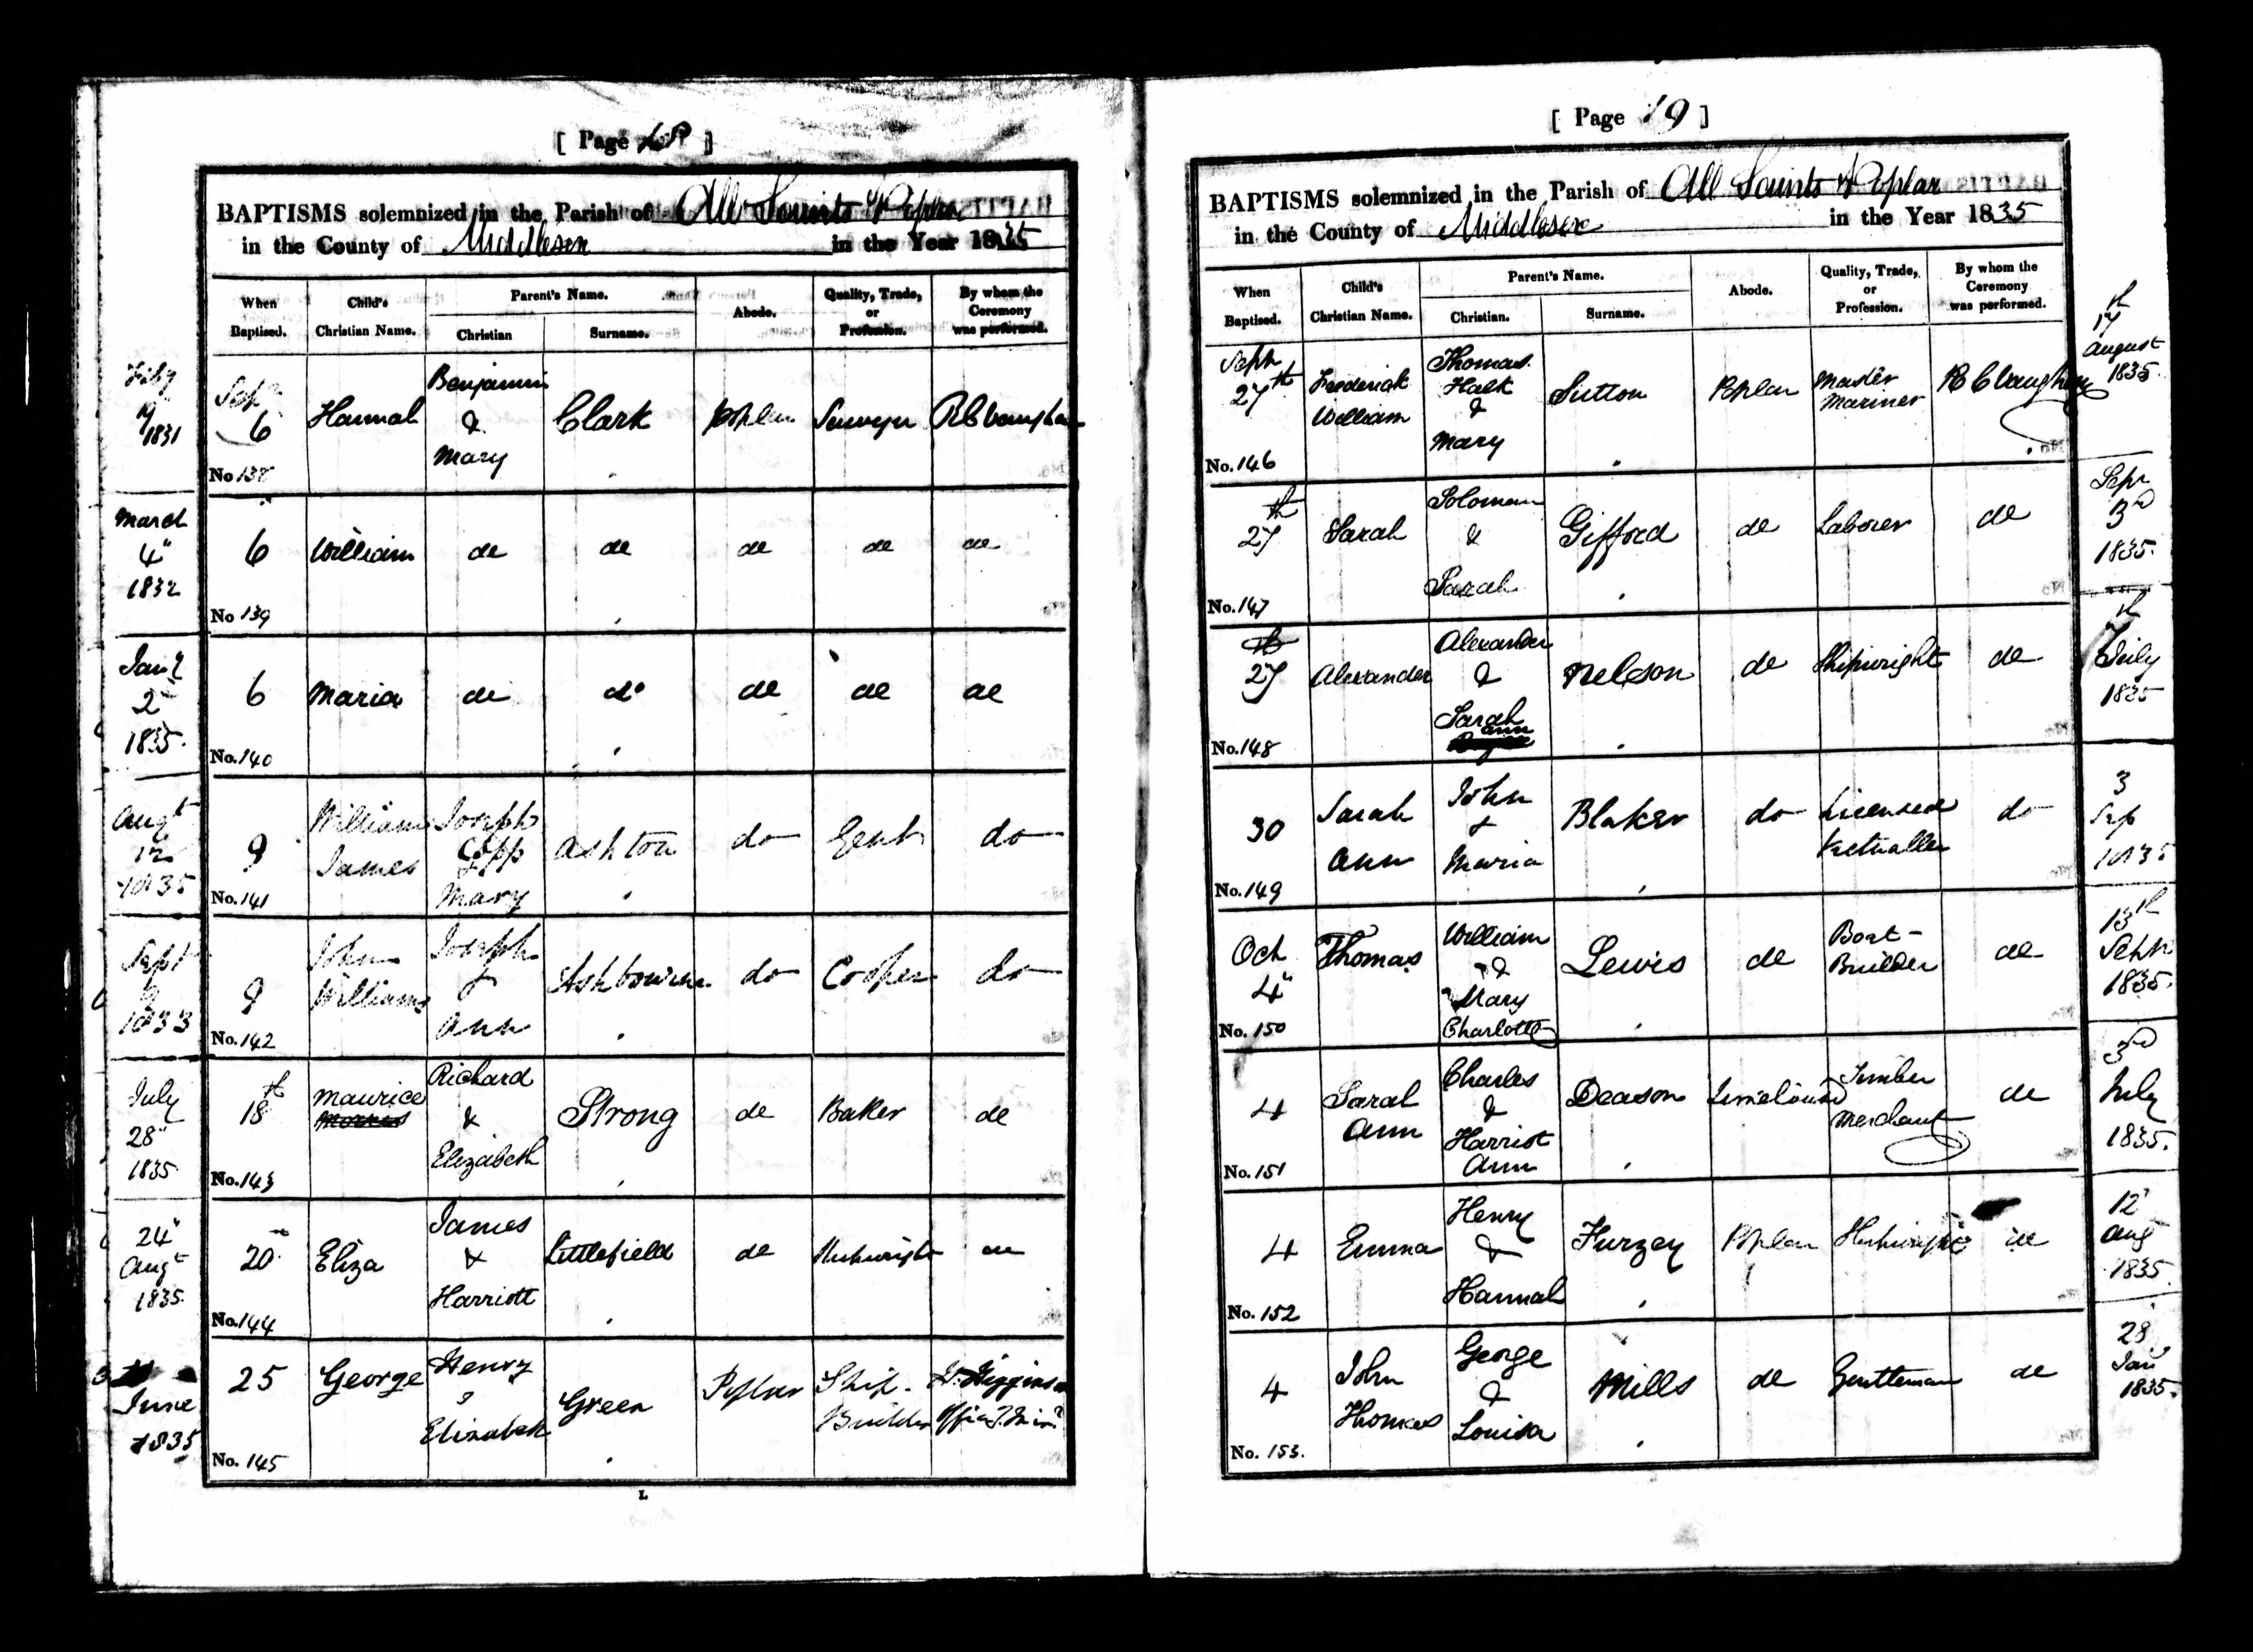 [ Page 18 ]
BAPTISMS solemnized in the Parish of All Saints Poplar
in the County of Middlesex in the Year 1835
When Baptised.
Child's Christian Name.
Parent's Name.
Christian
Surname.
Abode.
Quality, Trade, or Profession.
By whom the Ceremony was performed.
Feby
1831
Sepr
6
Hannah
Benjamin
&
Mary
Clark
Poplar
R C Vaughan
No 138
March
4"
1832
6
William
do
do
do
do
do
No 139
Jany
2
1835.
6
Maria
do
do
do
do
do
No. 140
Augt
12
1835
9
William
James
Joseph
Copp
&
Mary
Ashton
do
Gent
do
No. 141
Sept
9
1833
9
John
William
Joseph
&
Ann
Ashbourne
do
Cooper
do
No. 142
July
28"
1835
18th
Maurice
Richard
&
Elizabeth
Strong
do
Baker
do
No. 143
24"
Augt
1835.
20
Eliza
James
&
Harriott
Littlefield
do
Shipwright
do
No. 144
June
1835
25
George
Henry
&
Elizabeth
Green
Poplar
Ship-
Builder
H. Higginson
Offic. Minr
No. 145
L
[ Page 19 ]
BAPTISMS solemnized in the Parish of All Saints Poplar
in the County of Middlesex in the Year 1835
When Baptised.
Child's Christian Name.
Parent's Name.
Christian.
Surname.
Abode.
Quality, Trade, or Profession.
By whom the Ceremony was performed.
Sepr
27th
Frederick
William
Thomas
Halk
&
Mary
Sutton
Poplar
Master
Mariner
R C Vaughan
17th
August
1835
No. 146
27th
Sarah
Soloman
&
Sarah
Gifford
do
Laborer
do
Sepr
3rd
1835.
No. 147
27th
Alexander
Alexander
&
Sarah
Ann
Nelson
do
Shipwright
do
July
1835
No. 148
30
Sarah
Ann
John
&
Maria
Blaker
do
Licensed
Victualler
do
3
Sep
1835
No. 149
Oct
4"
Thomas
William
&
Mary
Charlotte
Lewis
do
Boat-
Builder
do
13th
Sepr
1835.
No. 150
4
Sarah
Ann
Charles
&
Harriot
Ann
Deason
Limehouse
Timber
Merchant
do
3rd
July
1835.
No. 151
4
Emma
Henry
&
Hannah
Furzey
Poplar
Shipwright
do
12
Aug
1835
No. 152
4
John
Thomas
George
&
Louisa
Mills
do
Gentleman
do
28
Jany
1835.
No. 153.